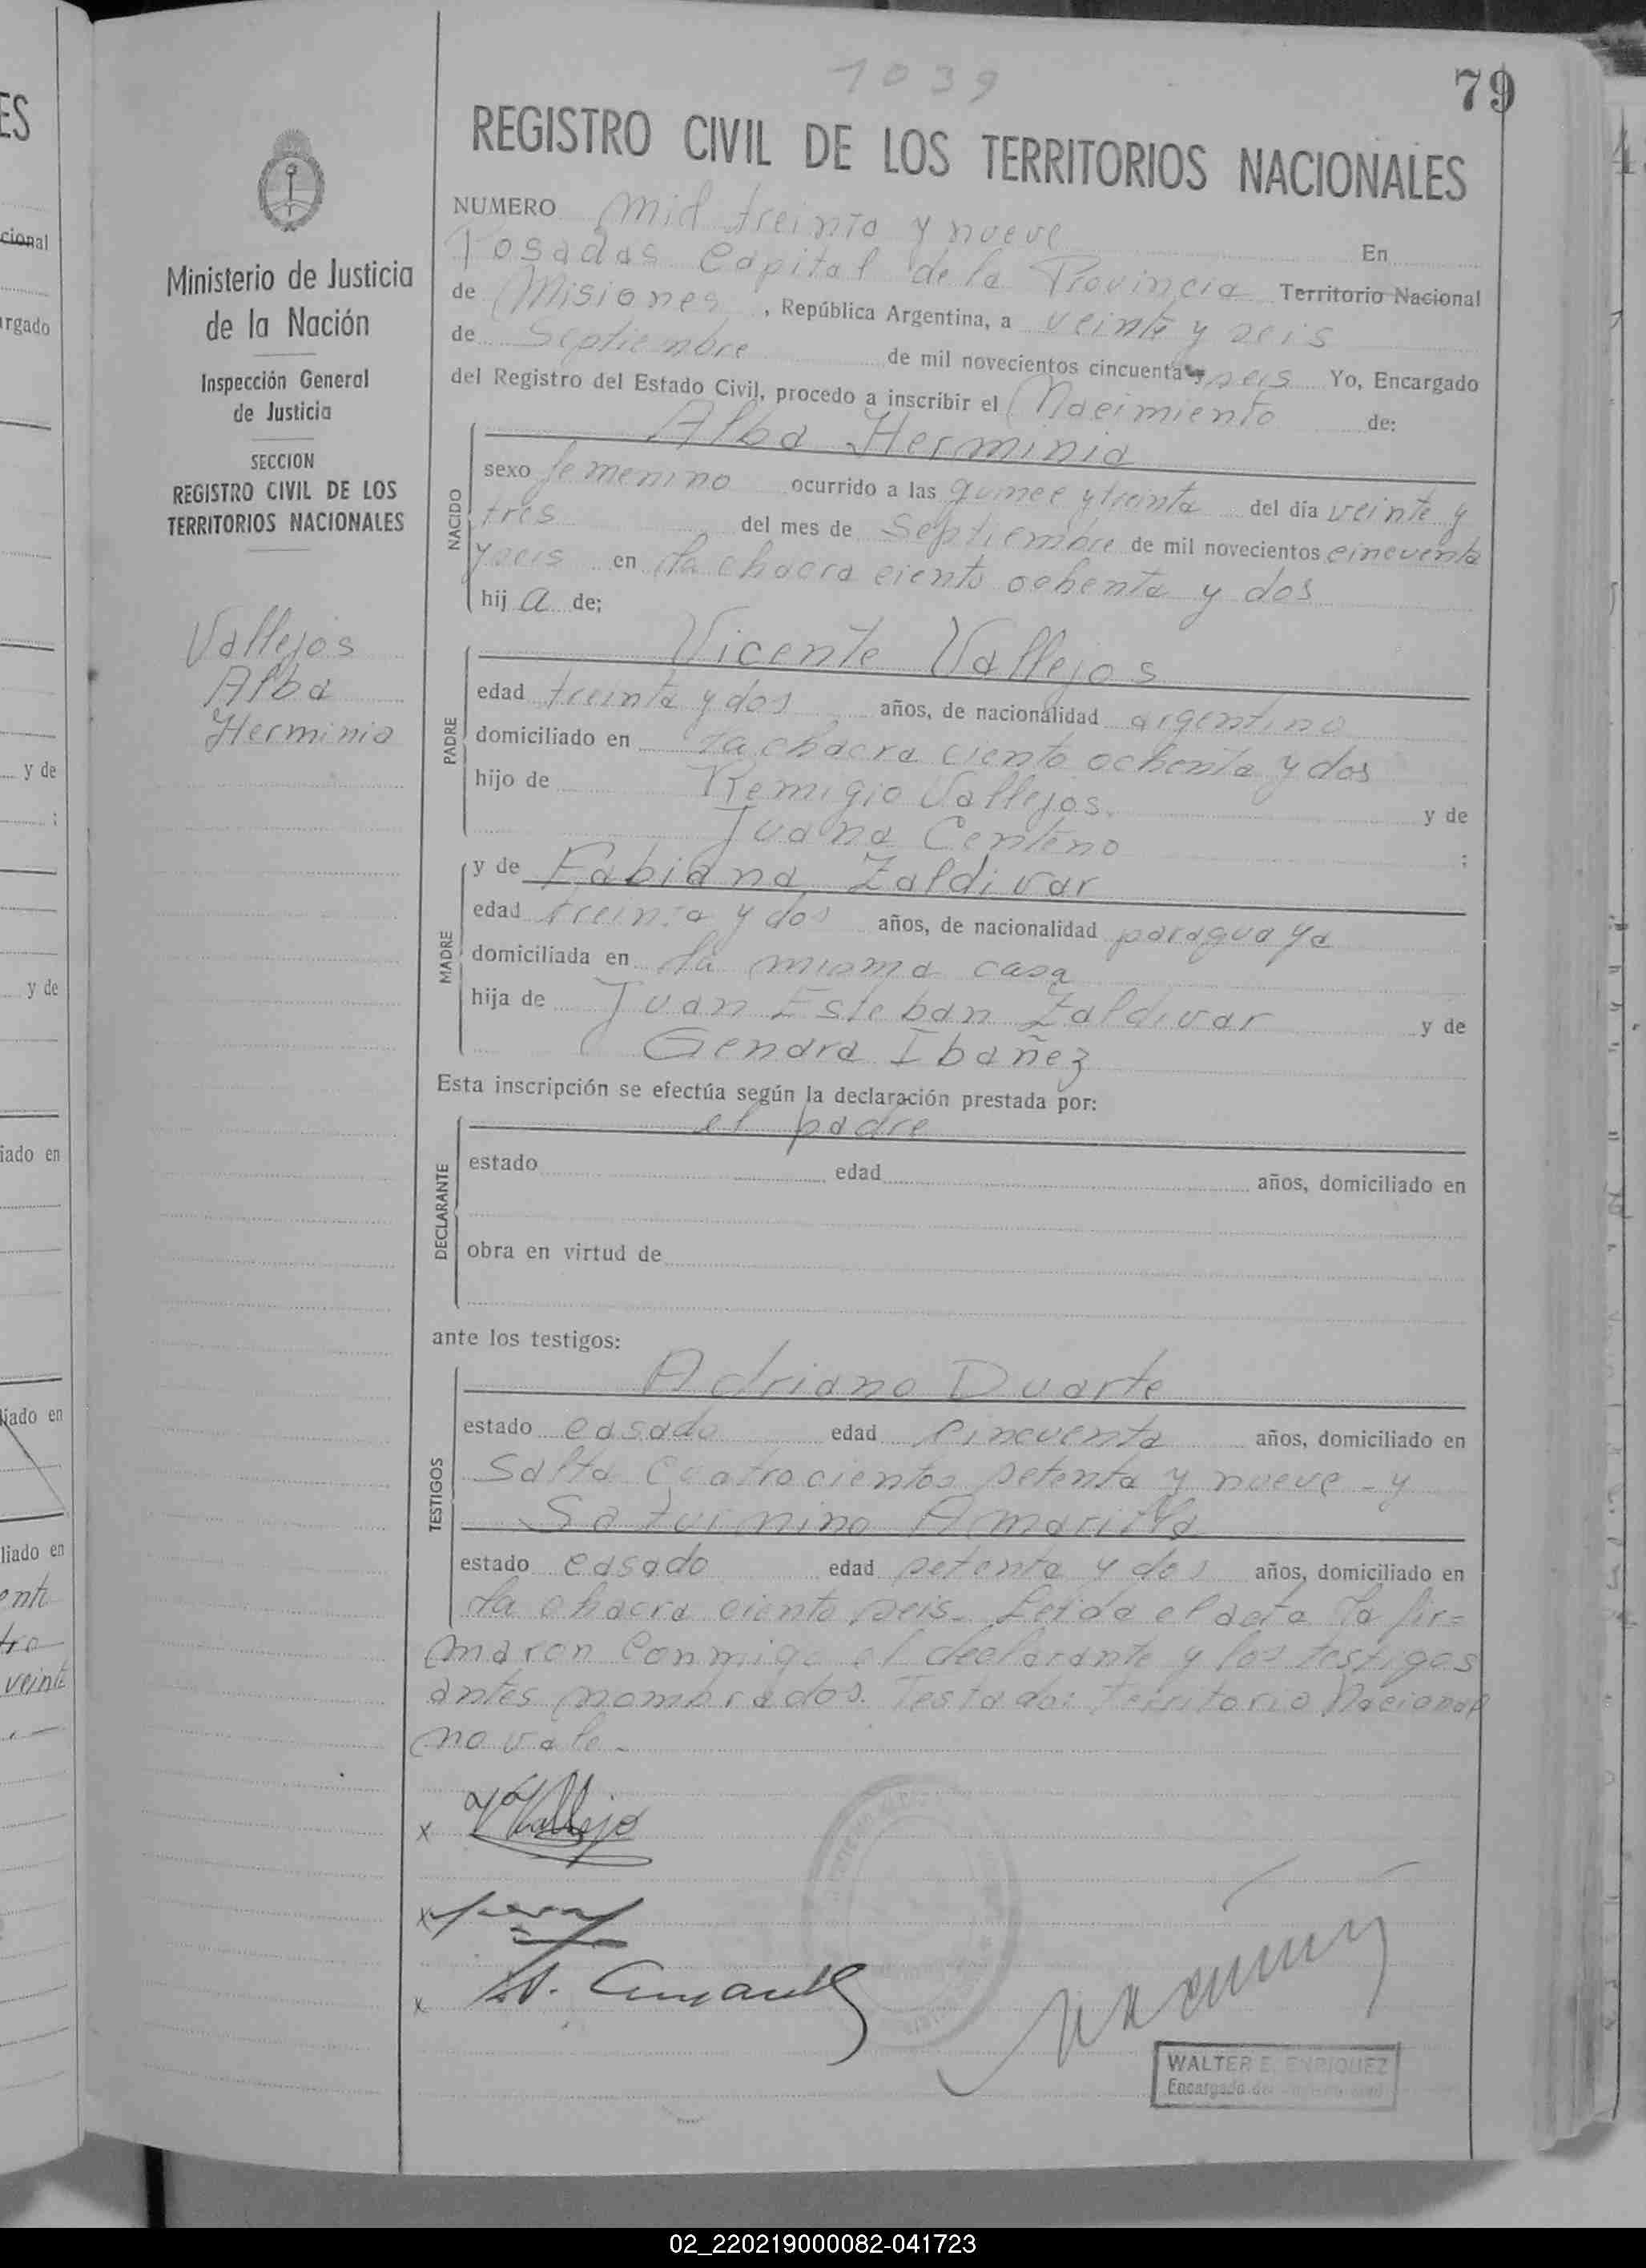 1039
79
REGISTRO CIVIL DE LOS TERRITORIOS NACIONALES
NUMERO mil treinta y nueve
En
Posadas Capital de la Provincia Territorio Nacional
de Misiones, República Argentina, a veinte y seis
de Septiembre de mil novecientos cincuenta y seis Yo, Encargado
del Registro del Estado Civil, procedo a inscribir el Nacimiento de:
Alba Herminia
NACIDO
sexo femenino ocurrido a las quince y treinta del día veinte y
tres del mes de Septiembre de mil novecientos cincuenta
y seis en la chacra ciento ochenta y dos
hij a de;
Vicente Vallejos
PADRE
edad treinta y dos años, de nacionalidad argentino
domiciliado en la chacra ciento ochenta y dos
hijo de Remigio Vallejos. y de
Juana Centeno ;
MADRE
y de Fabiana Zaldivar
edad treinta y dos años, de nacionalidad paraguaya
domiciliada en la misma casa
hija de Juan Esteban Zaldivar y de
Genara Ibañez
Esta inscripción se efectúa según la declaración prestada por:
el padre
DECLARANTE
estado edad años, domiciliado en
obra en virtud de
ante los testigos:
TESTIGOS
Adriano Duarte
estado casado edad cincuenta años, domiciliado en
Salta Cuatrocientos setenta y nueve - y
Saturnino Amarilla
estado casado edad setenta y dos años, domiciliado en
la chacra ciento seis. Leida el acta la fir=
maron conmigo el declarante y los testigos
antes nombrados. Testado: Territorio Nacional
no vale.-
x V Vallejo
x
x
WALTER E. ENRIQUEZ
Encargado del
Ministerio de Justicia
de la Nación
Inspección General
de Justicia
SECCION
REGISTRO CIVIL DE LOS
TERRITORIOS NACIONALES
Vallejos
Alba
Herminia
ES
cional
rgado
y de
;
y de
iado en
liado en
liado en
veinte
02_220219000082-041723